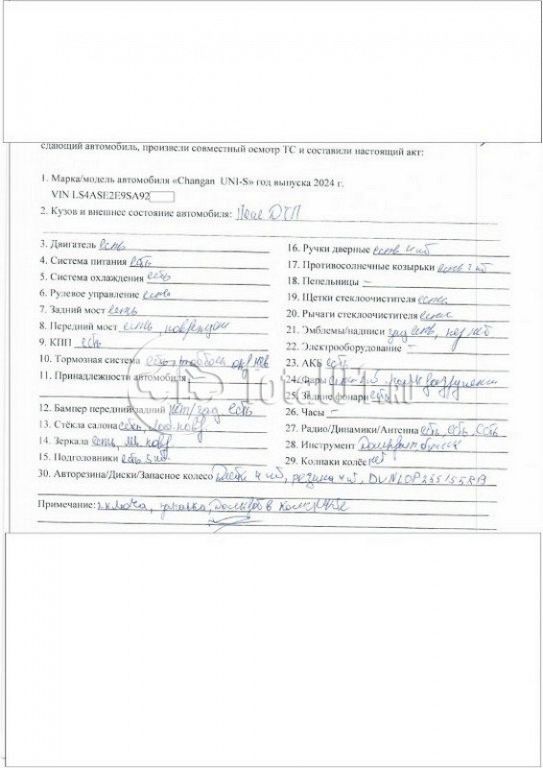 сдающий автомобиль, произвели совместный осмотр ТС и составили настоящий акт:
1. Марка/модель автомобиля «Changan UNI-S» год выпуска 2024 г.
VIN LS4ASE2E9SA92
2. Кузов и внешнее состояние автомобиля: После ДТП
3. Двигатель есть
4. Система питания есть
5. Система охлаждения есть
6. Рулевое управление есть
7. Задний мост есть
8. Передний мост есть, поврежден
9. КПП есть
10. Тормозная система есть
11. Принадлежности автомобиля
12. Бампер передний/задний нет/зад есть
13. Стёкла салона есть, лоб-повр.
14. Зеркала есть, повр.
15. Подголовники есть 5 шт.
16. Ручки дверные есть 4 шт
17. Противосолнечные козырьки есть 2 шт
18. Пепельницы –
19. Щетки стеклоочистителя есть
20. Рычаги стеклоочистителя есть
21. Эмблемы/надписи зад есть, пер нет
22. Электрооборудование –
23. АКБ есть
24. Фары
25. Задние фонари есть
26. Часы –
27. Радио/Динамики/Антенна есть, есть, есть
28. Инструмент
29. Колпаки колёс нет
30. Авторезина/Диски/Запасное колесо Диски 4 шт, резина 4 шт. DUNLOP 235/55 R19
Примечание: 2 ключа,
Total01.ru